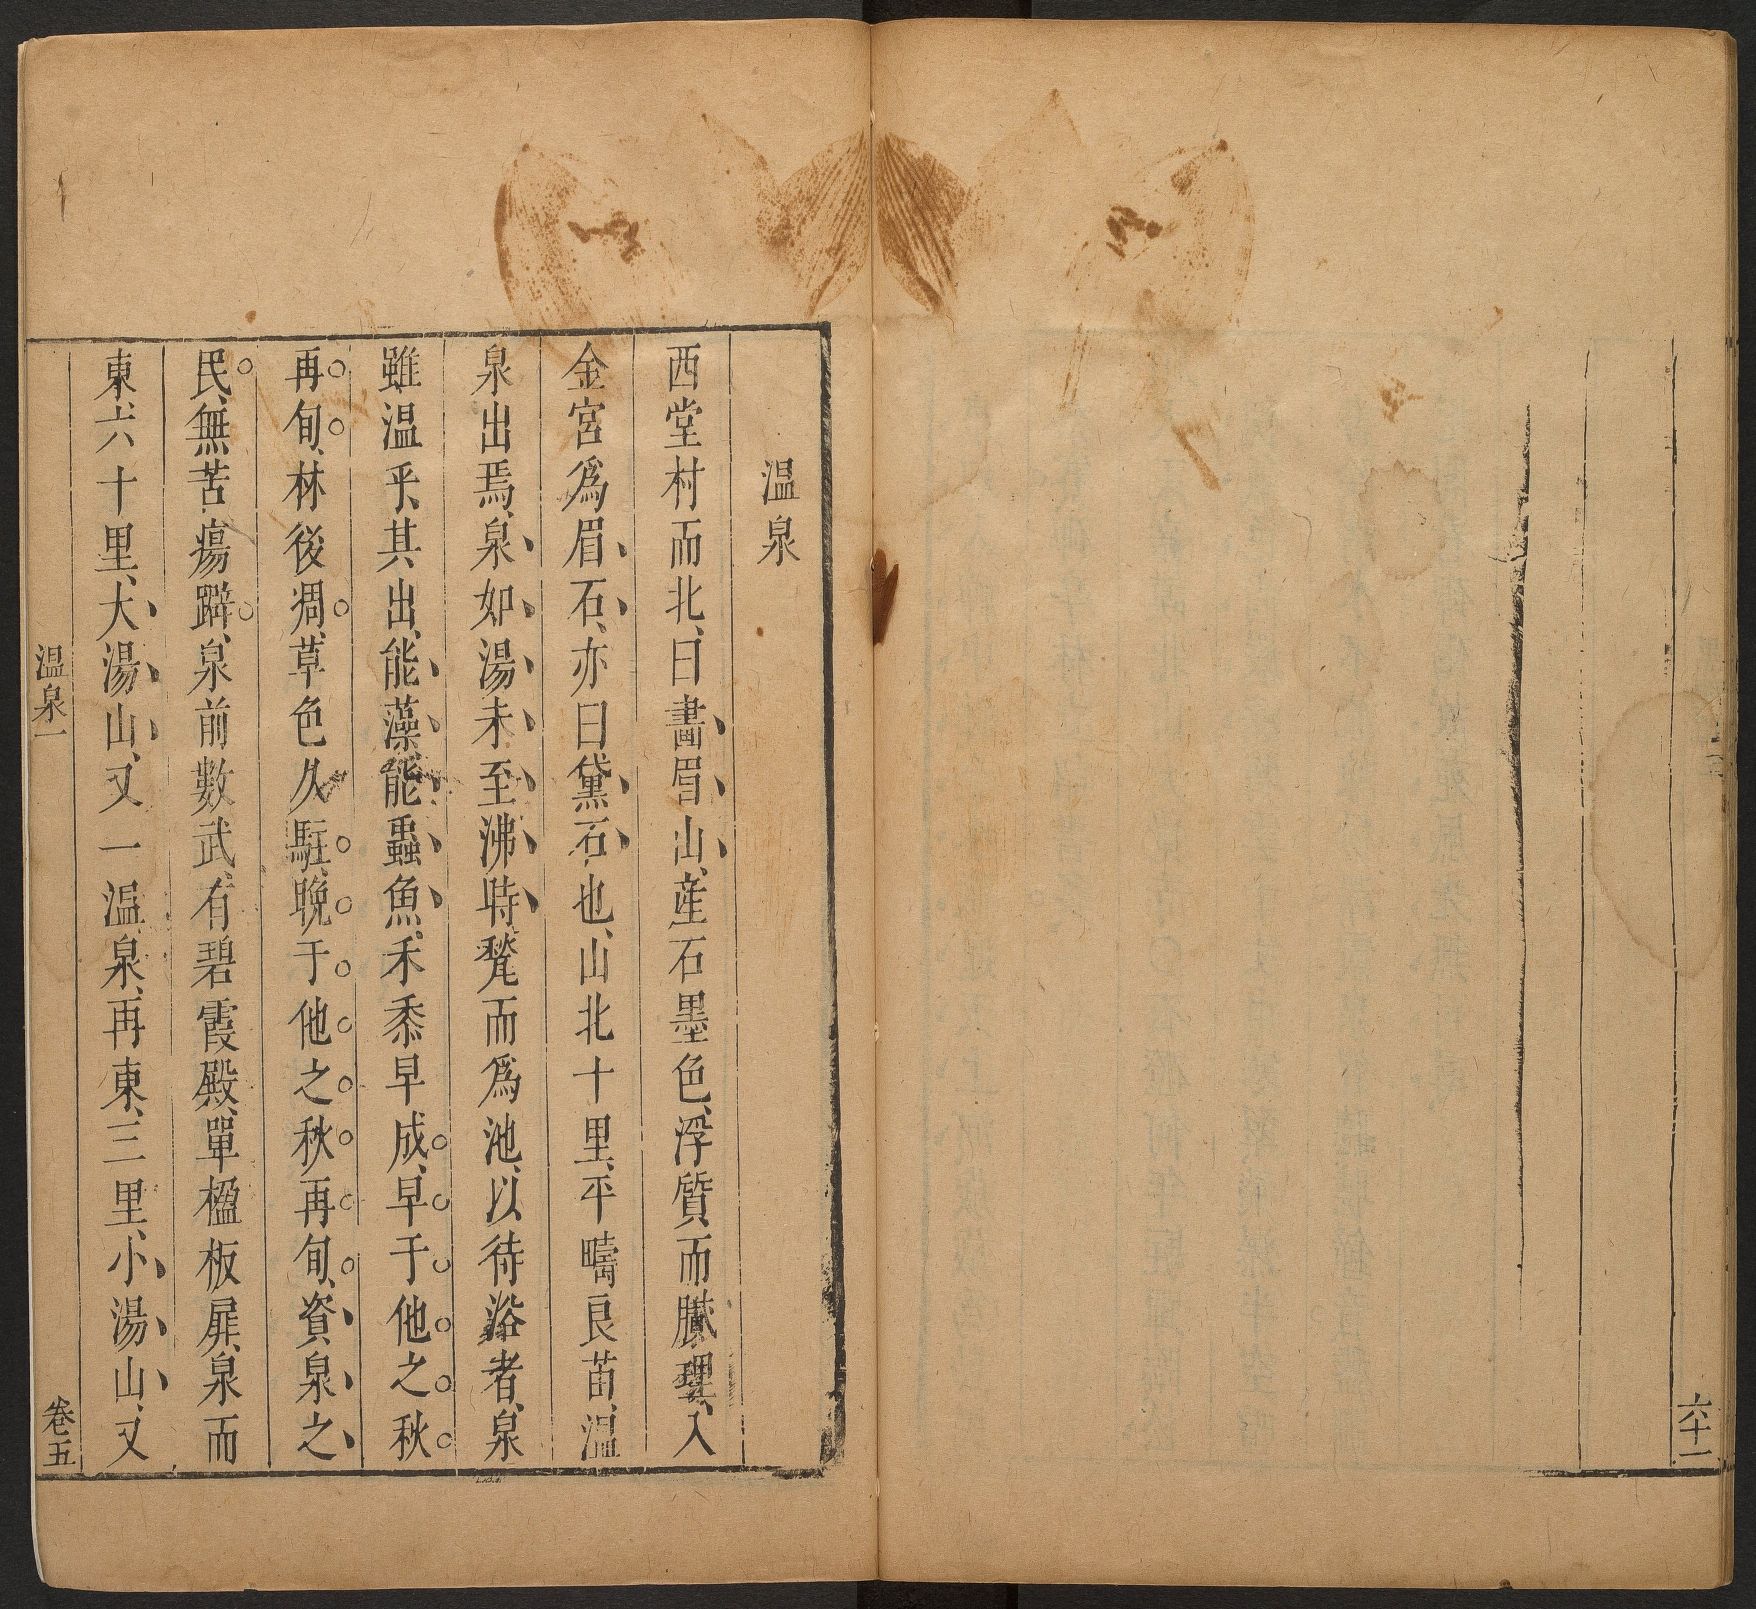 六十一
温泉
西堂村而北、曰畵眉山、産石墨色、浮質而膩理、入
金宮爲眉石、亦曰黛石也、山北十里、平疇良苗、温
泉出焉、泉如湯未至沸時、甃而爲池、以待浴者、泉
雖温乎、其出、能藻、能蟲魚、禾黍早成、早于他之秋
再旬、林後凋、草色久駐、晩于他之秋再旬、資泉之
民、無苦瘍躃、泉前數武、有碧霞殿、單楹板扉、泉而
東、六十里、大湯山、又一温泉、再東、三里、小湯山、又
温泉一
卷五